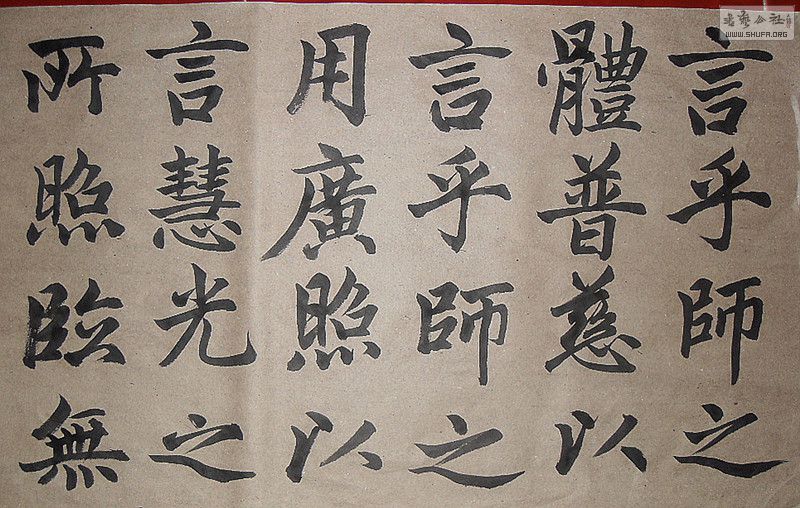 言乎師之
體普慈以
言乎師之
用廣照以
言慧光之
所照臨無
書藝公社
WWW.SHUFA.ORG